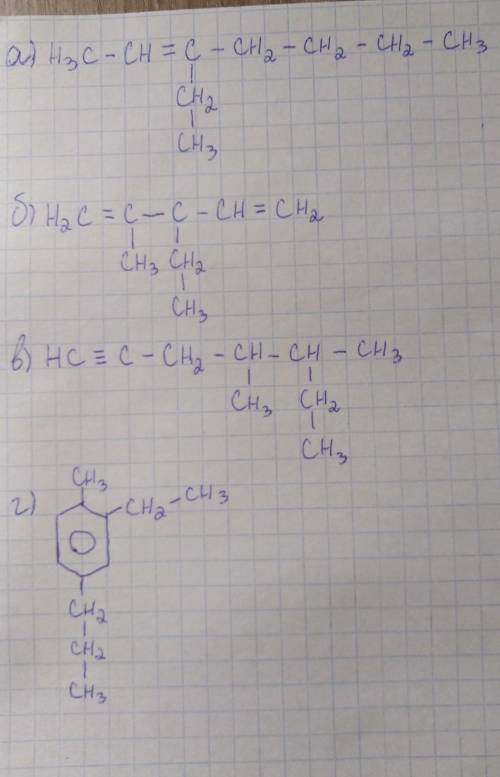 а) H₃C - CH = C - CH₂ - CH₂ - CH₂ - CH₃
CH₂
CH₃
б) H₂C = C - C - CH = CH₂
CH₃ CH₂
CH₃
в) HC ≡ C - CH₂ - CH - CH - CH₃
CH₃ CH₂
CH₃
г) CH₃
CH₂ - CH₃
CH₂
CH₂
CH₃